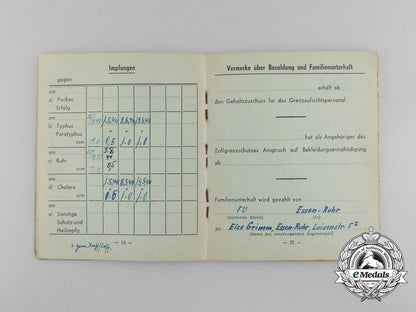 Impfungen
gegen
am
a) Pocken
Erfolg
am
b) Typhus
Paratyphus
ccm
0.5 1.0 1.0
am
c) Ruhr
ccm
am
d) Cholera
ccm
0.5 1.0 1.0
am
e) Sonstige
Schutz- und
Heilimpfg.
— 14 —
Vermerke über Besoldung und Familienunterhalt
erhält ab
den Gehaltszuschuss für das Grenzaufsichtspersonal.
hat als Angehöriger des
Zollgrenzschutzes Anspruch auf Bekleidungsentschädigung
ab
Familienunterhalt wird gezahlt von
FU Essen-Ruhr
(zahlende Stelle) (in)
an Else Grimm, Essen-Ruhr, Luisenstr. 5
(Name des empfangenden Angehörigen)
— 15 —